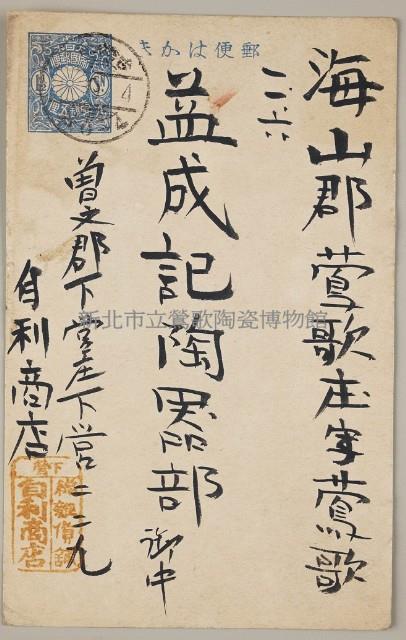 郵便はかき
海山郡鶯歌庄字鶯歌
二六
益成記陶器部 御中
曽文郡下営庄下営二二九
百利商店
新北市立鶯歌陶瓷博物館
下營
百利商店